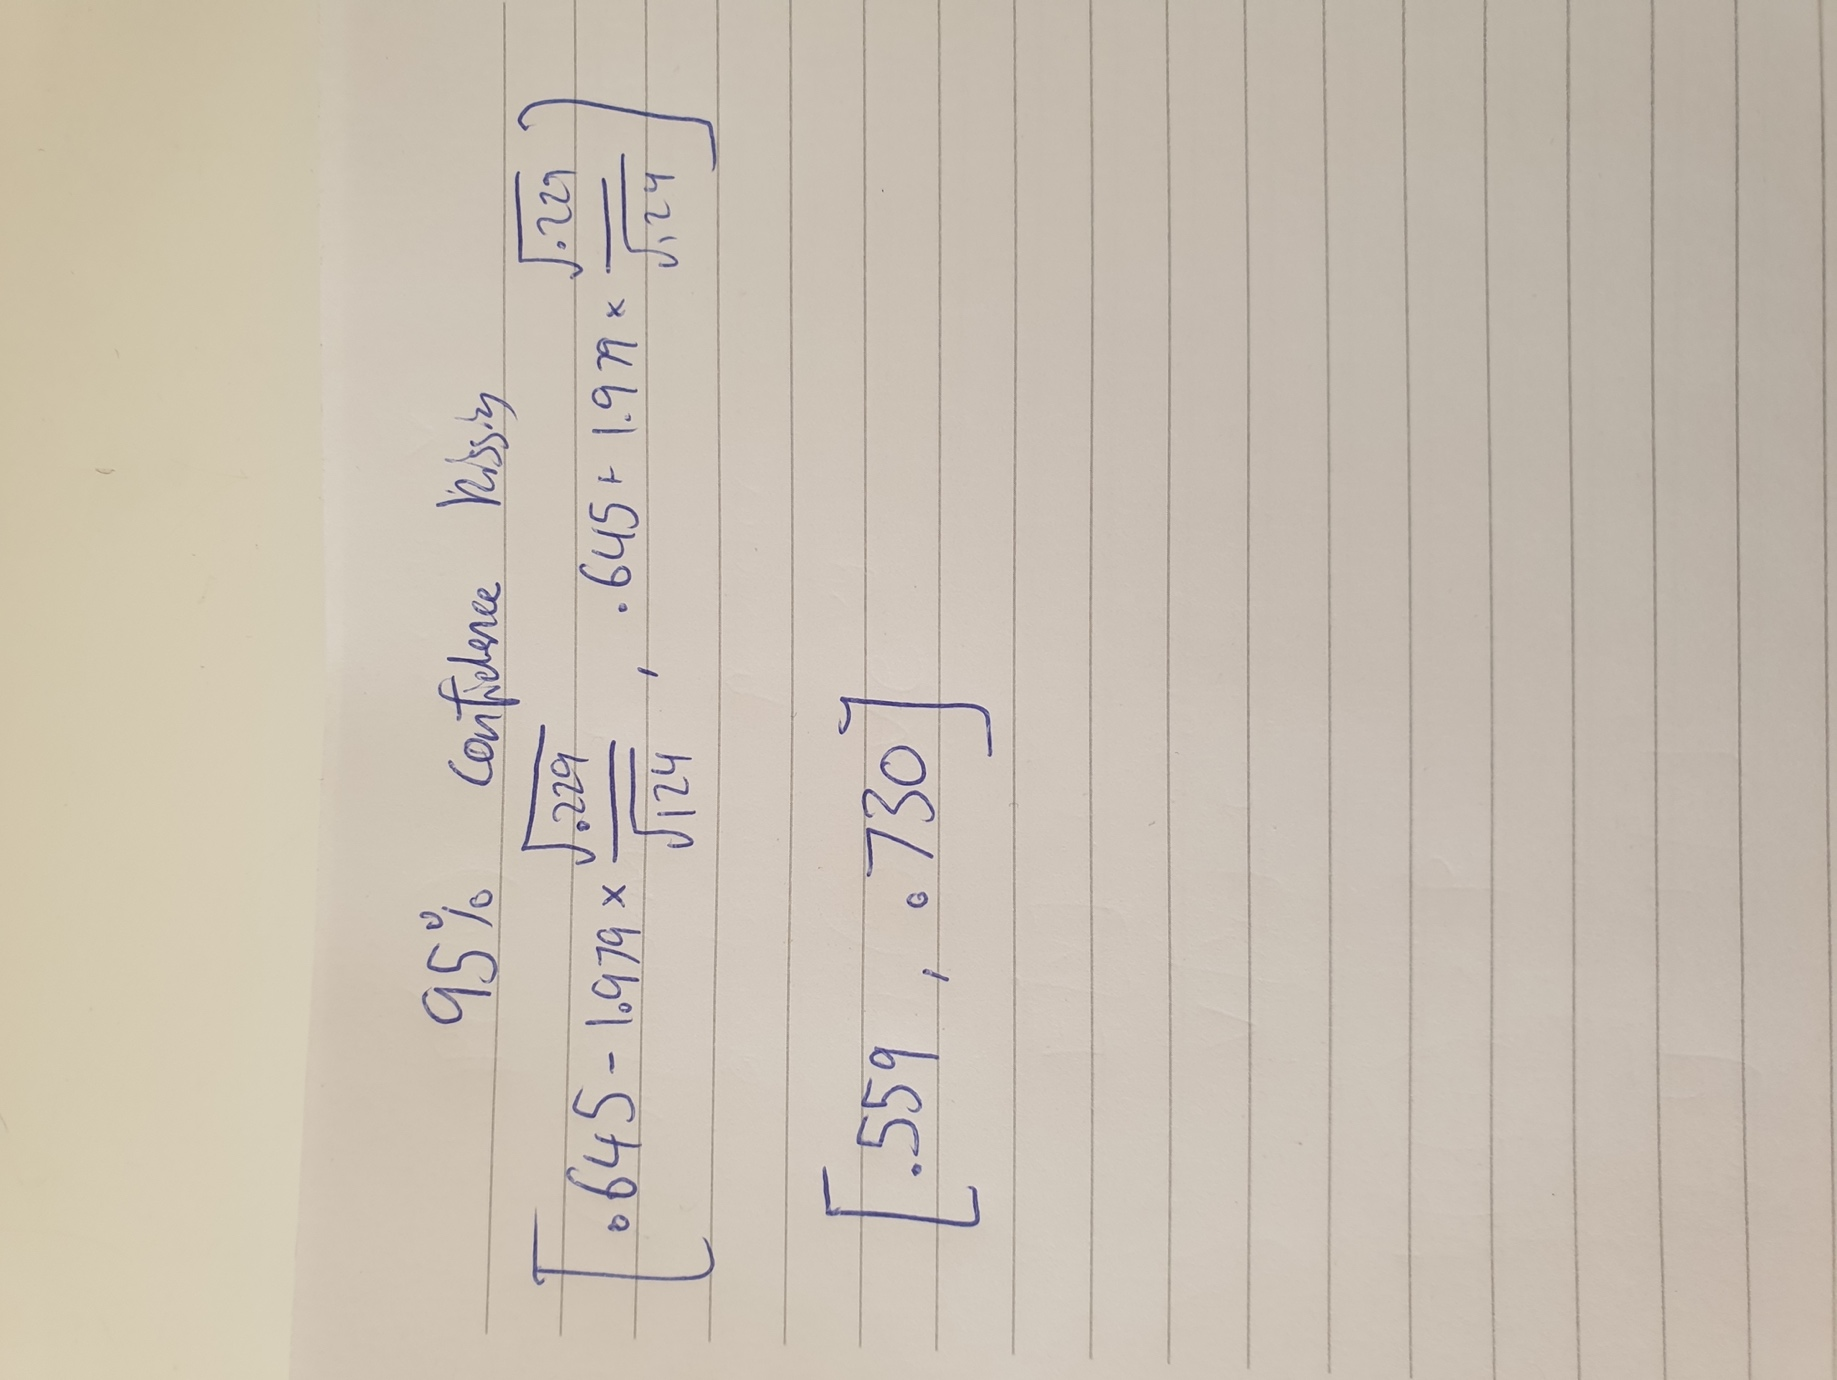 95% Confidence kissing
[.645 - 1.979 × √.229 / √124 , .645 + 1.979 × √.229 / √124]
[.559 , .730]